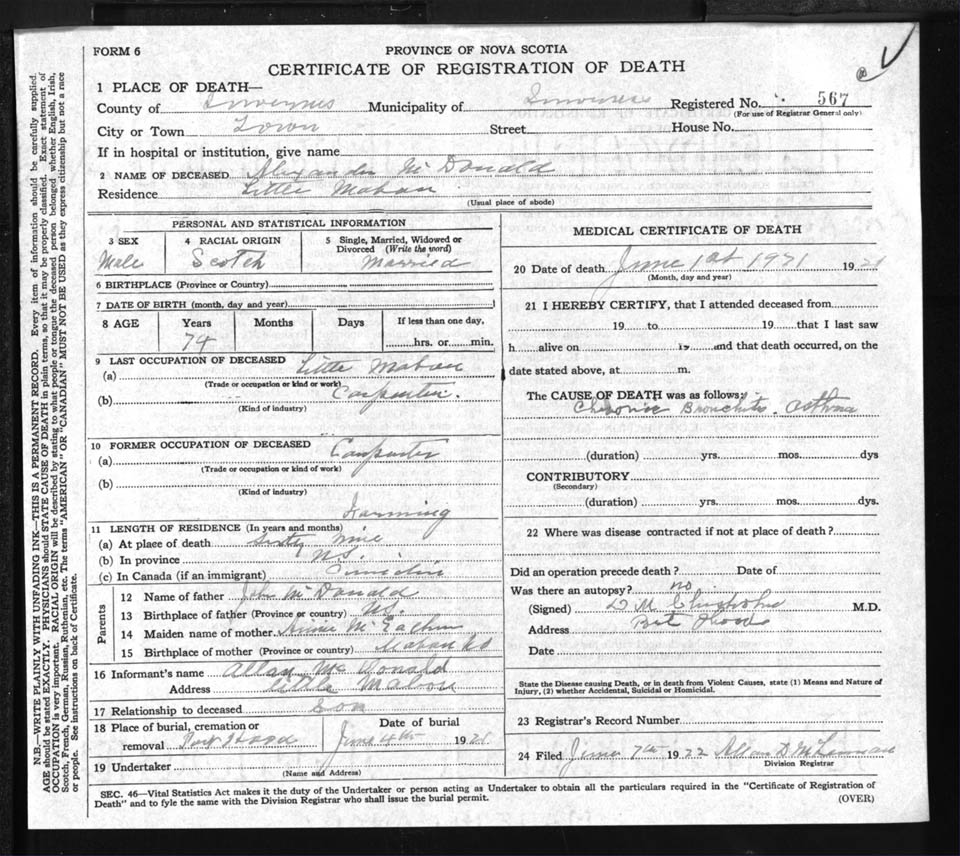 FORM 6
PROVINCE OF NOVA SCOTIA
CERTIFICATE OF REGISTRATION OF DEATH
1 PLACE OF DEATH—
County of Inverness Municipality of Inverness Registered No. 567
(For use of Registrar General only)
City or Town Town Street House No.
If in hospital or institution, give name
2 NAME OF DECEASED Alexander McDonald
Residence Little Mabou
(Usual place of abode)
PERSONAL AND STATISTICAL INFORMATION
3 SEX 4 RACIAL ORIGIN 5 Single, Married, Widowed or Divorced (Write the word)
Male Scotch Married
6 BIRTHPLACE (Province or Country)
7 DATE OF BIRTH (month, day and year)
8 AGE Years Months Days If less than one day,
74 hrs. or min.
9 LAST OCCUPATION OF DECEASED Little Mabou
(a)
(Trade or occupation or kind of work)
(b) Carpenter.
(Kind of industry)
10 FORMER OCCUPATION OF DECEASED Carpenter
(a)
(Trade or occupation or kind of work)
(b)
(Kind of industry)
Farming
11 LENGTH OF RESIDENCE (In years and months)
(a) At place of death Sixty nine
(b) In province N.S.
(c) In Canada (if an immigrant)
Parents
12 Name of father John McDonald
13 Birthplace of father (Province or country) N.S.
14 Maiden name of mother McEachen
15 Birthplace of mother (Province or country) Mabou
16 Informant's name Allan McDonald
Address Little Mabou
17 Relationship to deceased Son
18 Place of burial, cremation or removal Port Hood Date of burial June 4th 1921
19 Undertaker
(Name and Address)
MEDICAL CERTIFICATE OF DEATH
20 Date of death June 1st 1921 1921
(Month, day and year)
21 I HEREBY CERTIFY, that I attended deceased from
19 to 19 that I last saw
h alive on 19 and that death occurred, on the
date stated above, at m.
The CAUSE OF DEATH was as follows:
Chronic Bronchitis. Asthma
(duration) yrs. mos. dys
CONTRIBUTORY
(Secondary)
(duration) yrs. mos. dys.
22 Where was disease contracted if not at place of death?
Did an operation precede death? Date of
Was there an autopsy? no
(Signed) D M Chisholm M.D.
Address Port Hood
Date
State the Disease causing Death, or in death from Violent Causes, state (1) Means and Nature of
Injury, (2) whether Accidental, Suicidal or Homicidal.
23 Registrar's Record Number
24 Filed June 7th 1922 Allan D McLennan
Division Registrar
SEC. 46—Vital Statistics Act makes it the duty of the Undertaker or person acting as Undertaker to obtain all the particulars required in the "Certificate of Registration of
Death" and to fyle the same with the Division Registrar who shall issue the burial permit. (OVER)
N.B.—WRITE PLAINLY WITH UNFADING INK—THIS IS A PERMANENT RECORD. Every item of information should be carefully supplied.
AGE should be stated EXACTLY. PHYSICIANS should STATE CAUSE OF DEATH in plain terms, so that it may be properly classified. Exact statement of
OCCUPATION is very important. RACIAL ORIGIN will be described by stating to what people or tongue the deceased person belonged whether English, Irish,
Scotch, French, German, Russian, Ruthenian, etc. The terms "AMERICAN" OR "CANADIAN" MUST NOT BE USED as they express citizenship but not a race
or people. See instructions on back of Certificate.